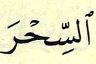 ٱلسِّحْرَ